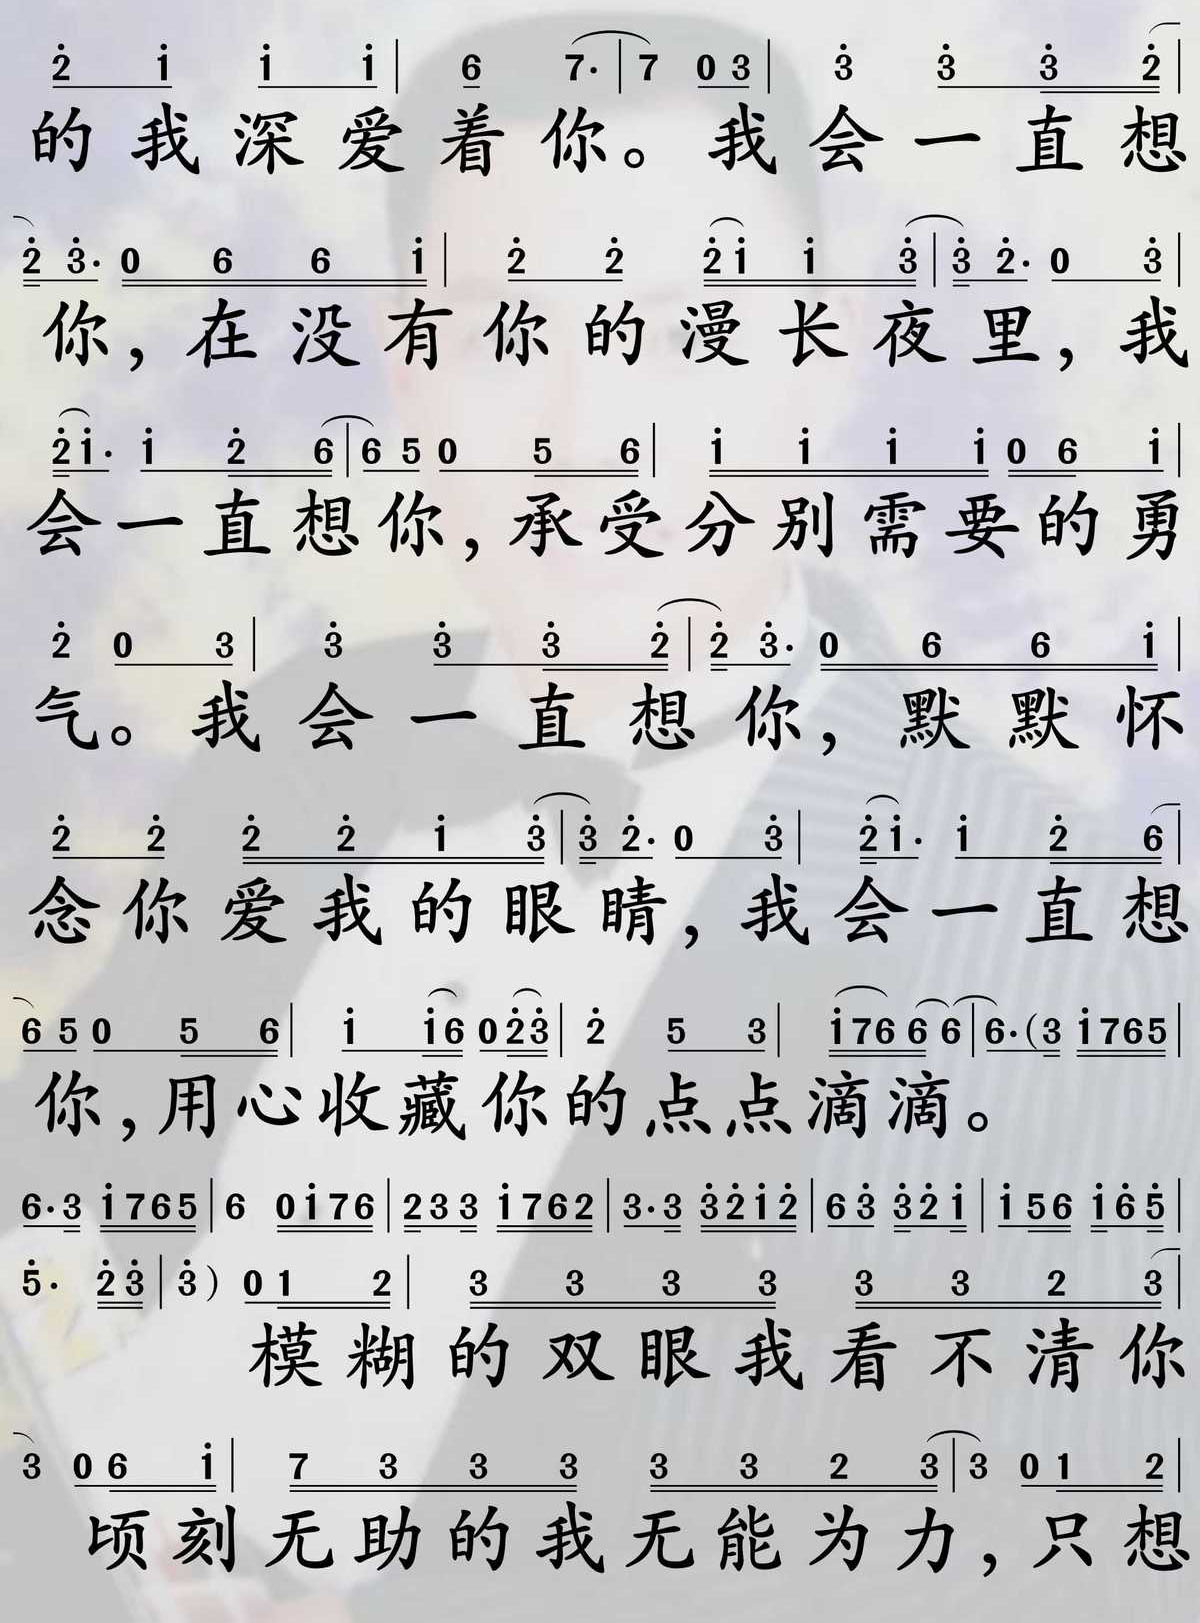 2̇ 1̇ 1̇ 1̇ | 6 7· | 7 0 3 | 3̇ 3̇ 3̇ 2̇ |
的我深爱着你。我会一直想
2̇ 3̇· 0 6 6 1̇ | 2̇ 2̇ 2̇ 1̇ 1̇ 3̇ | 3̇ 2̇· 0 3̇ |
你,在没有你的漫长夜里,我
2̇ 1̇· 1̇ 2̇ 6 | 6 5 0 5 6 | 1̇ 1̇ 1̇ 1̇ 0 6 1̇ |
会一直想你,承受分别需要的勇
2̇ 0 3 | 3̇ 3̇ 3̇ 2̇ | 2̇ 3̇· 0 6 6 1̇ |
气。我会一直想你,默默怀
2̇ 2̇ 2̇ 2̇ 1̇ 3̇ | 3̇ 2̇· 0 3̇ | 2̇ 1̇· 1̇ 2̇ 6 |
念你爱我的眼睛,我会一直想
6 5 0 5 6 | 1̇ 1̇ 6 0 2̇ 3̇ | 2̇ 5 3 | 1̇ 7 6 6 6 | 6· (3 1̇ 7 6 5 |
你,用心收藏你的点点滴滴。
6· 3 1̇ 7 6 5 | 6 0 1̇ 7 6 | 2 3 3 1̇ 7 6 2 | 3· 3 3̇ 2̇ 1̇ 2̇ | 6 3̇ 3̇ 2̇ 1̇ | 1̇ 5 6 1̇ 6̇ 5̇ |
5̇· 2̇ 3̇ | 3̇ ) 0 1 2 | 3 3 3 3 3 3 2 3 |
模糊的双眼我看不清你
3 0 6 1̇ | 7 3 3 3 3 3 2 3 | 3 0 1 2 |
顷刻无助的我无能为力,只想